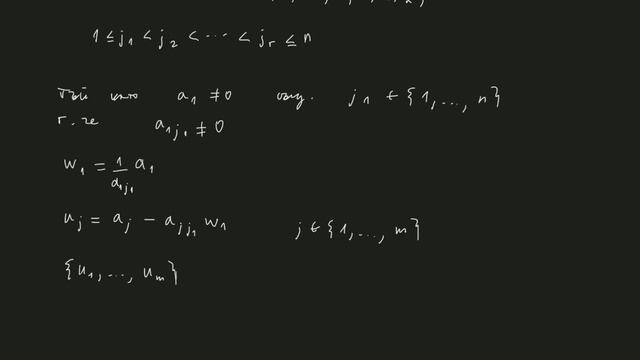 1 ≤ j₁ < j₂ < ⋯ < jᵣ ≤ n
Тъй като a₁ ≠ 0 същ. j₁ ∈ {1, ..., n}
т. че a₁ⱼ₁ ≠ 0
w₁ = 1/a₁ⱼ₁ a₁
uⱼ = aⱼ − aⱼⱼ₁ w₁ j ∈ {1, ..., m}
{u₁, ..., uₘ}